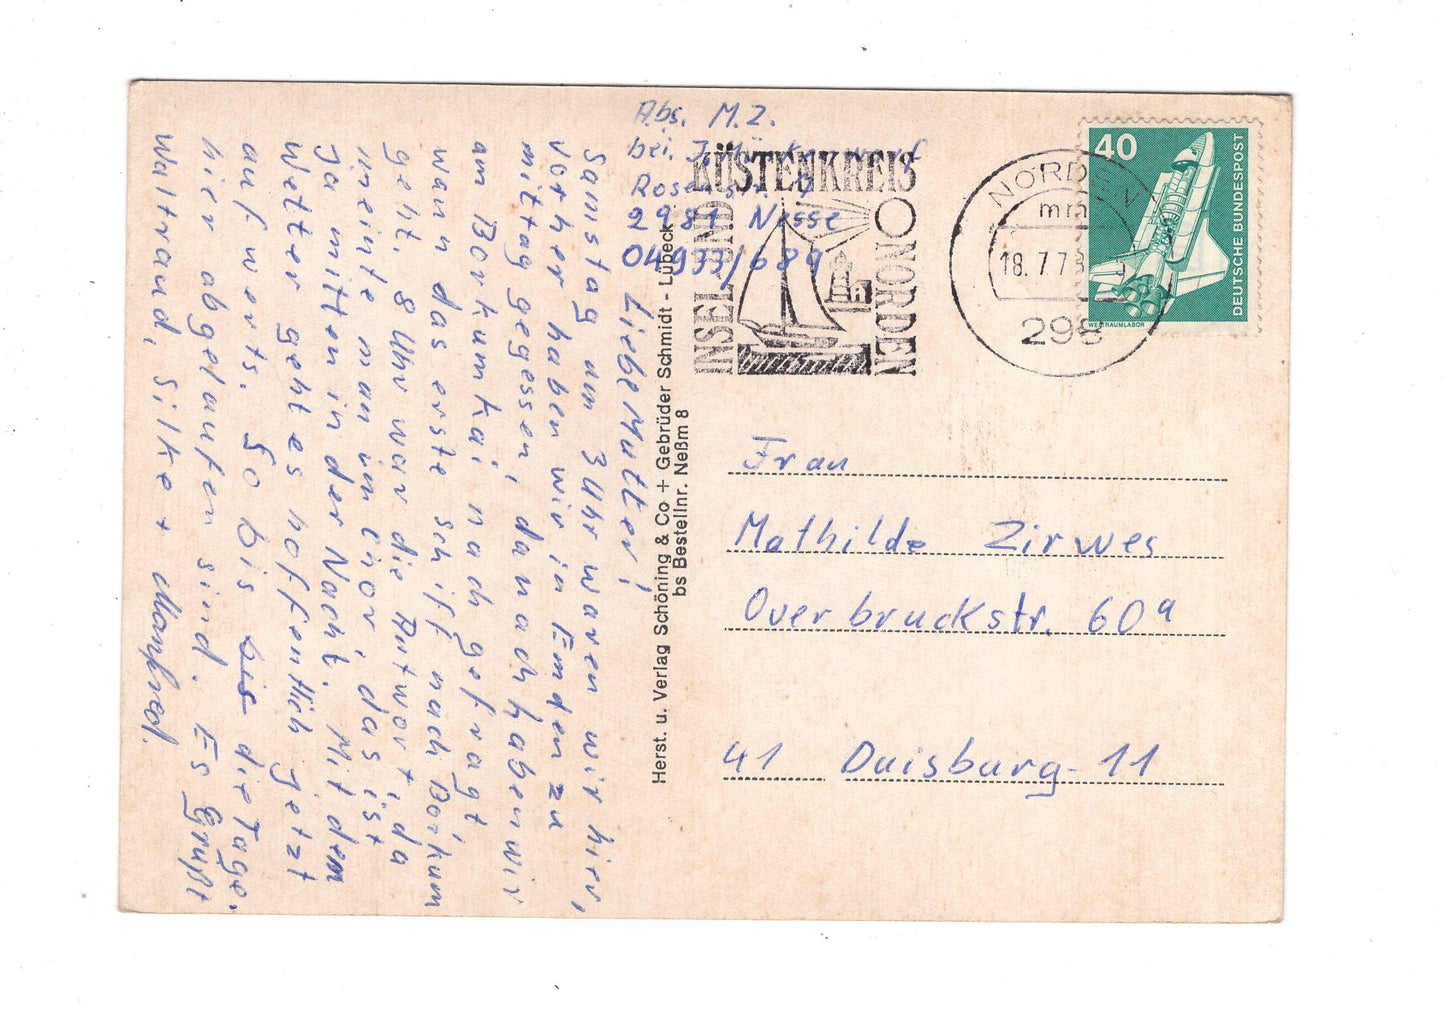 Abs. M. Z.
bei J.
2981 Nesse
04933/689
Liebe Mutter!
Samstag um 3 Uhr waren wir hier,
vorher haben wir in Emden zu
mittag gegessen, danach haben wir
am Borkumkai nach gefragt
wann das erste schiff nach Borkum
geht. 8 Uhr war die Antwort, da
meinte man im Chor, das ist
Ja mitten in der Nacht. Mit dem
Wetter geht es hoffentlich jetzt
aufwerts. So bis bis die Tage
hier abgelaufen sind. Es grüßt
Waltraud, Silke + Manfred.
Herst. u. Verlag Schöning & Co + Gebrüder Schmidt - Lübeck
bs Bestellnr. Neßm 8
INSEL UND
KÜSTENKREIS
NORDEN
NORDEN
mm
18.7.78
298
40
DEUTSCHE BUNDESPOST
WELTRAUMLABOR
Frau
Mathilde Zirwes
Overbruckstr. 60a
41 Duisburg-11